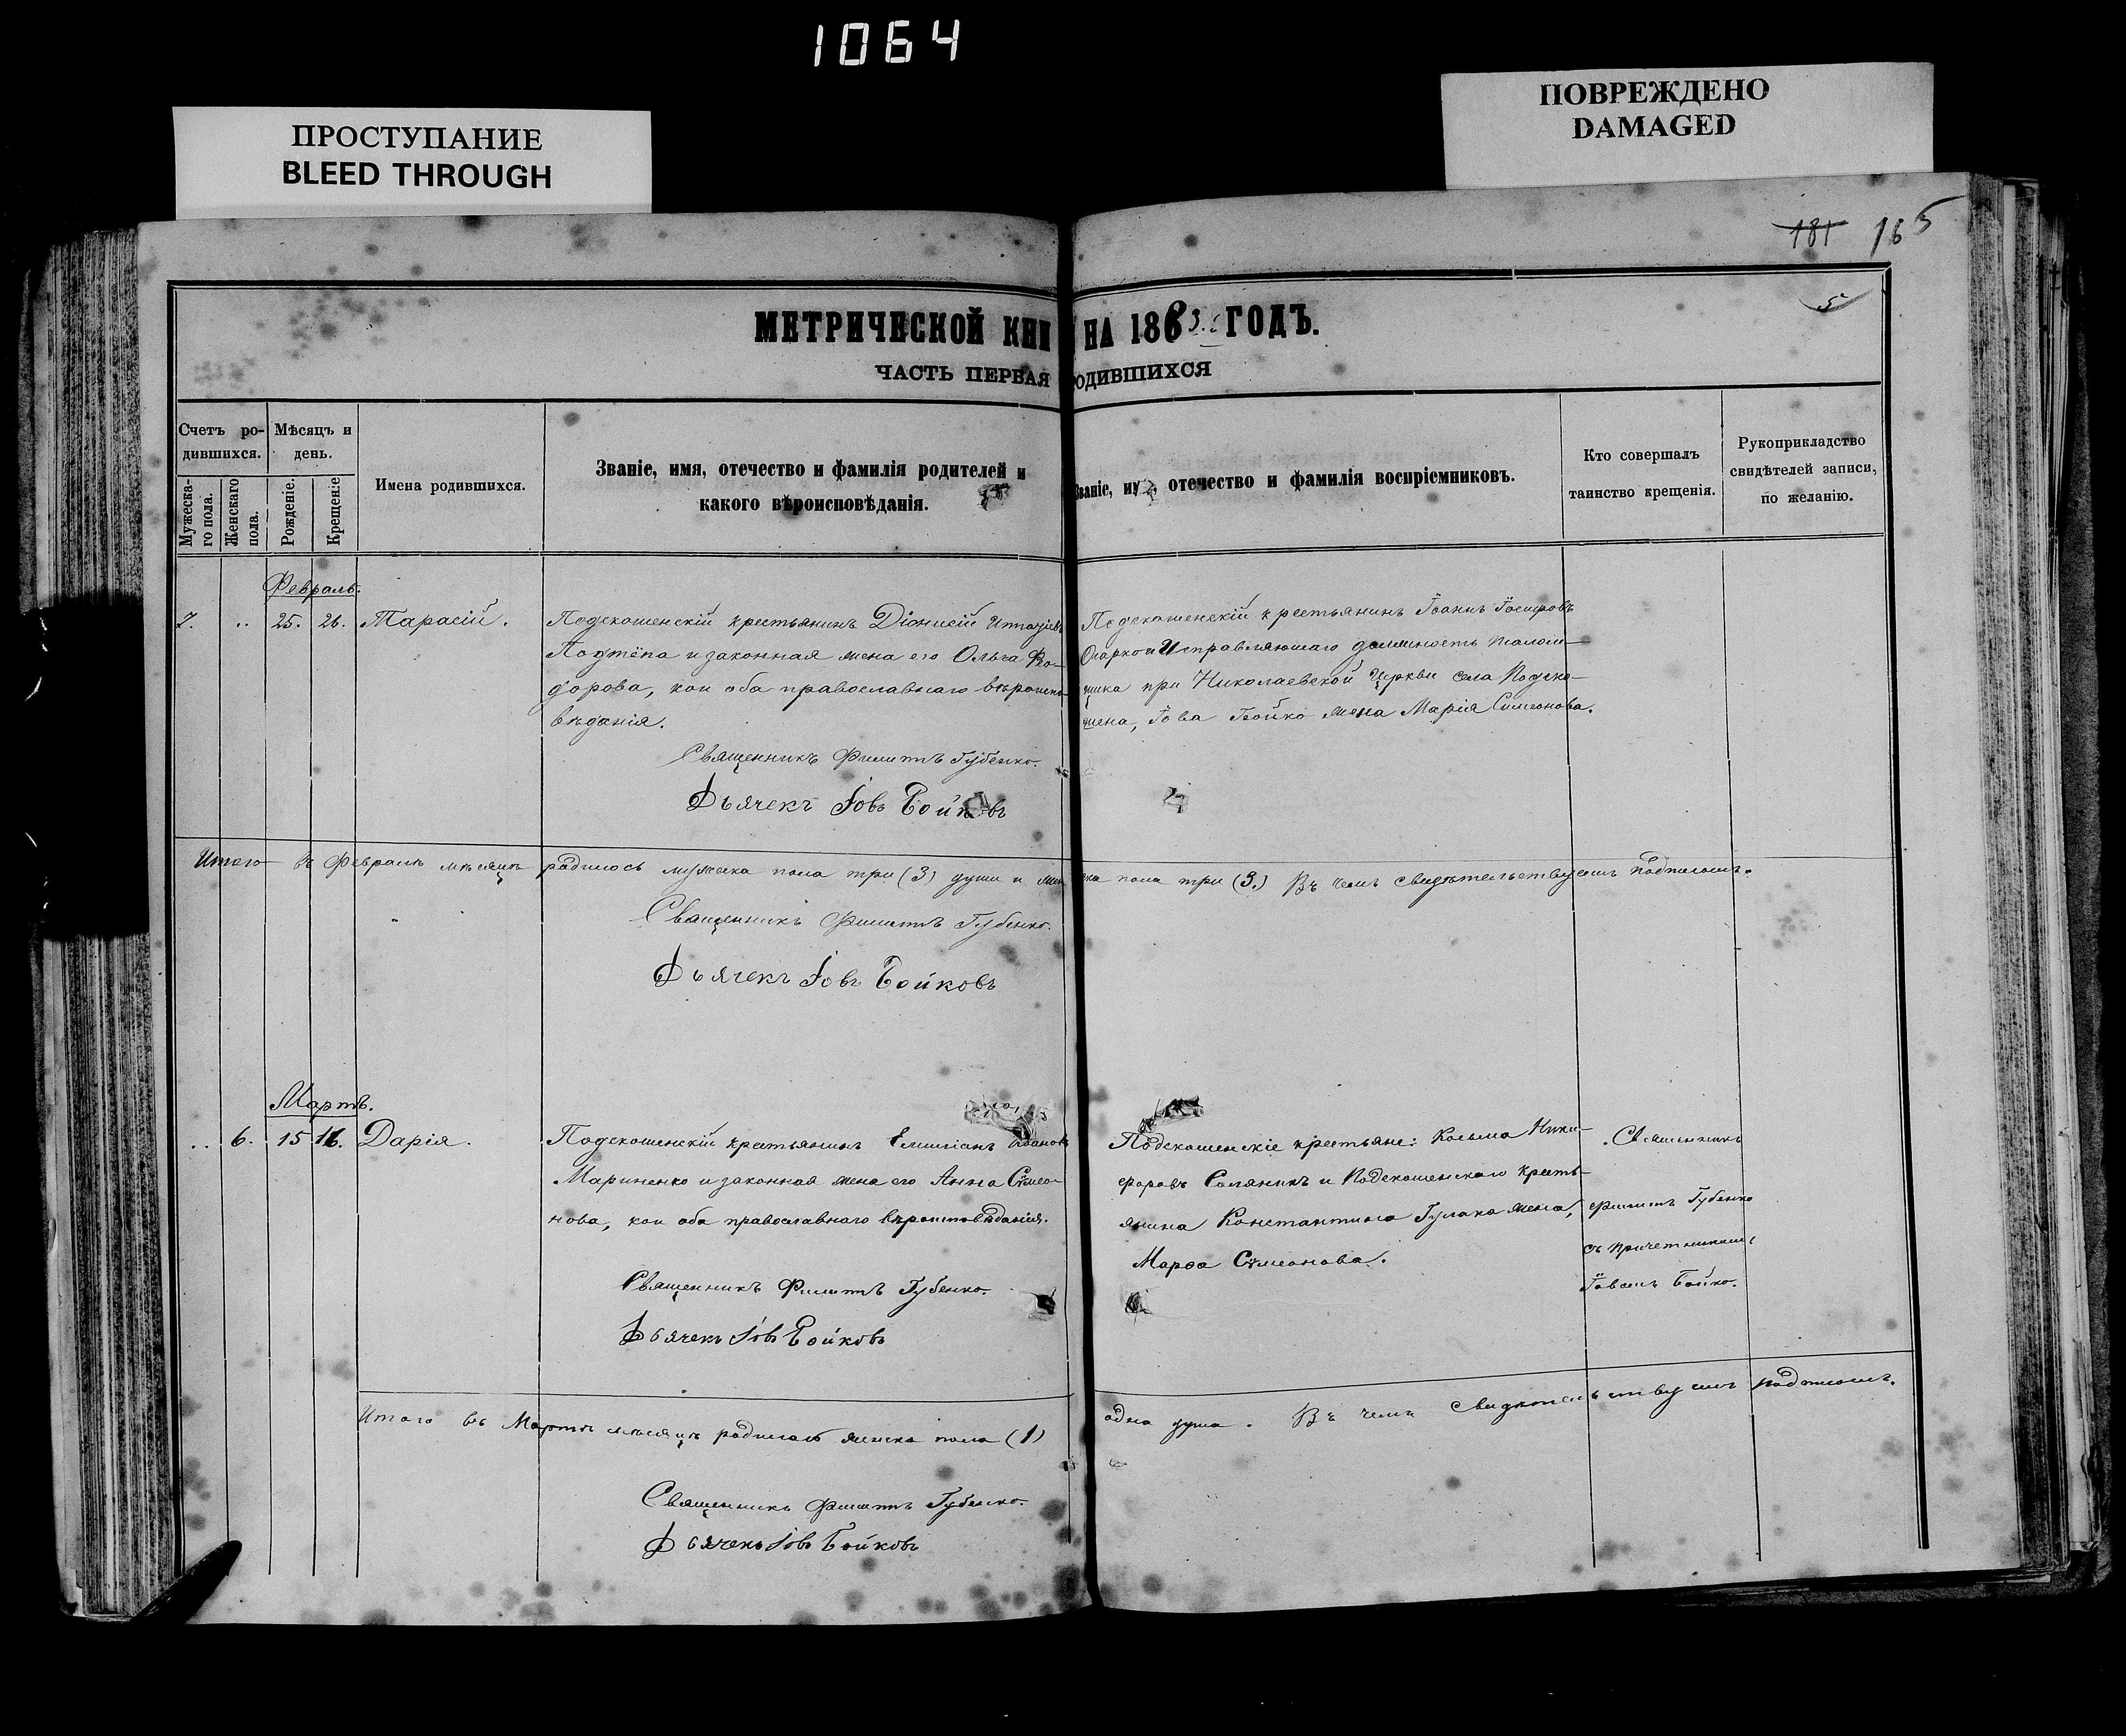 1064
ПРОСТУПАНИЕ
BLEED THROUGH
ПОВРЕЖДЕНО
DAMAGED
181 165
5
МЕТРИЧЕСКОЙ КНИ НА 1883 ГОДЪ.
ЧАСТЬ ПЕРВАЯ ОДИВШИХСЯ
Счетъ ро-
дившихся.
Мѣсяцъ и
день.
Мужеска-
го пола.
Женскаго
пола.
Рожденіе.
Крещеніе
Имена родившихся.
Званіе, имя, отечество и фамилія родителей и
какого вѣроисповѣданія.
Званіе, и отечество и фамилія воспріемниковъ.
Кто совершалъ
таинство крещенія.
Рукоприкладство
свидѣтелей записи,
по желанію.
Февраль.
7. .. 25. 26. Тарасій.
Подскошенскій крестьянинъ Діонисій
и законная жена его Ольга Ѳео-
дорова, кои оба православнаго вѣроиспо-
вѣданія.
Священникъ Филиппъ Губенко.
Дьячекъ Іовъ Бойковъ
Подскошенскій крестьянинъ Іоаннъ
и Исправляющаго должность псалом-
щика при Николаевской Церкви села Подско-
шена, Іова Бойко жена Марія Симеонова.
Итого въ Февралѣ мѣсяцѣ родилось мужеска пола три (3) души и жен
ска пола три (3.) Въ чемъ свидѣтельствуемъ подписомъ.
Священникъ Филиппъ Губенко.
Дьячекъ Іовъ Бойковъ
Мартъ.
.. 6. 15 16. Дарія.
Подскошенскій крестьянинъ Емиліанъ
Мариненко и законная жена его Анна Сѵмео-
нова, кои оба православнаго вѣроисповѣданія.
Священникъ Филиппъ Губенко.
Дьячекъ Іовъ Бойковъ
Подскошенскіе крестьяне: Косьма Ники-
форовъ Соляникъ и Подскошенскаго кресть-
янина Константина Гулака жена,
Марѳа Сѵмеонова.
Священникъ
Филиппъ Губенко
съ причетникомъ
Іовомъ Бойко.
Итого въ Мартѣ мѣсяцѣ родилось женска пола (1)
одна душа. Въ чемъ свидѣтельствуемъ подписомъ.
Священникъ Филиппъ Губенко.
Дьячекъ Іовъ Бойковъ